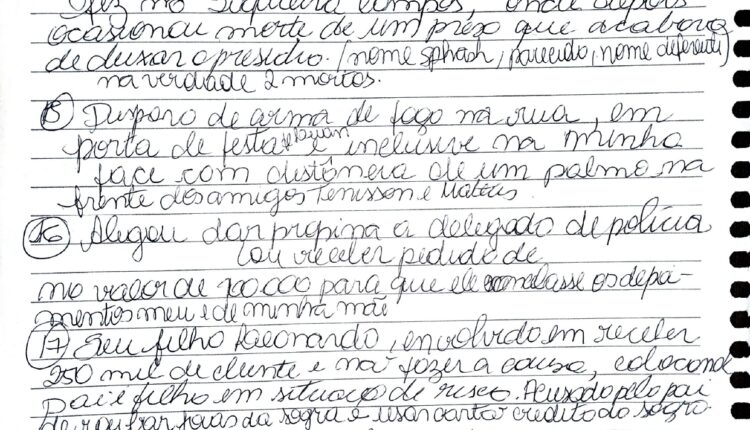 fez no Siqueira Campos, onde depois
ocasionou morte de um preso que acabara
de deixar o presídio. (nome splash, parecido, nome diferente)
na verdade 2 mortos.
15 Disparo de arma de fogo na rua, em
porta de festa e inclusive na minha
face com distância de um palmo na
frente dos amigos Tenisson e Mattias
16 Alegou dar propina a delegado de polícia
(ou receber pedido de
no valor de 100.000 para que ele os depoi-
mentos meu e de minha mãe
17 Seu filho Leonardo, envolvido em receber
250 mil de cliente e não fazer a causa, colocando
pai e filho em situação de risco. Acusado pelo pai
de roubar joias da sogra e usar cartão crédito do sogro.